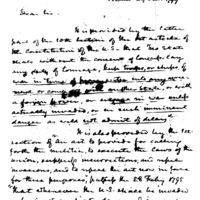 Dear Sir
It is provided by the latter
part of the 10th section of the 1st article of
the constitution of the U.S. that No State
shall without the consent of Congress lay
any duty of tonnage, keep troops, or ships of
war in time of peace, enter into any agree-
ment or compact with another state, or with
a foreign power, or engage in war unless
actually invaded, or in such imminent
danger as will not admit of delay.
It is also provided by the 1st
section of an act to provide for calling
forth the militia, to execute the laws of the
union, suppress insurrections, and repel
invasions, and to repeal the act now in force
for those purposes, passed the 28 Feby 1795
"that whenever the U.S. shall be invaded